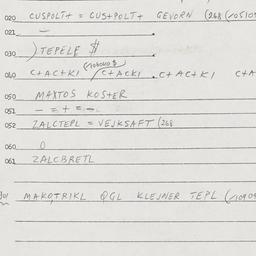 020 CUSPOLT+ = CUS+POLT+ GEVORN (268 (10510
021 —
030 ) TEPELE $
040 C+AC+KI / C+ACKI . C+AC+KI C+A
050 MAXTOS KOS+ER
051 – = + = –
052 ZALCTEPL = VEJKSAFT (268
060 0
061 ZALCBRETL
MAKOTRIKL QGL KLEJNER TEPL